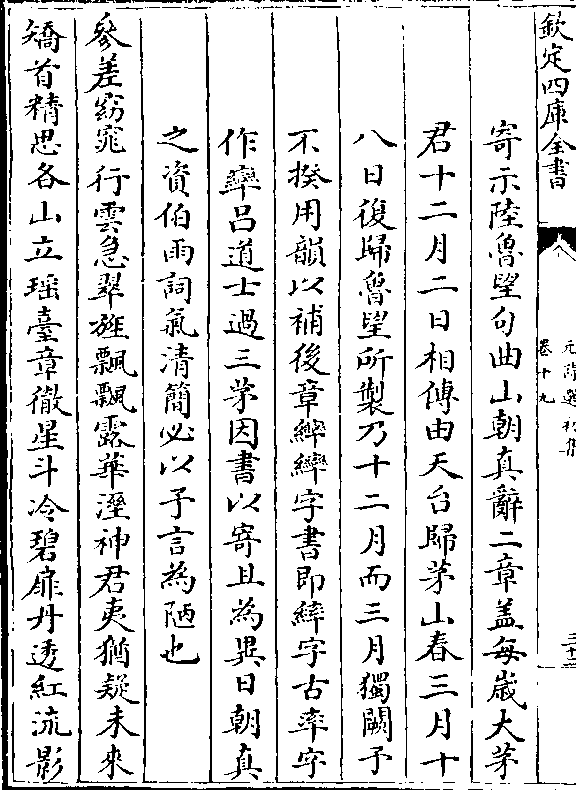 欽定四庫全書
元詩選初集
卷十九
寄示陸魯望句曲山朝真辭二章盖每歳大茅
君十二月二日相傳由天台歸茅山春三月十
八日復歸魯望所製乃十二月而三月獨闕予
不揆用韻以補後章字書即字古率字
作呂道士過三茅因書以寄且為異日朝真
之資伯雨詞氣清簡必以予言為陋也
參差窈窕行雲急翠旌飄飄露華溼神君夷猶疑未來
矯首精思各山立瑶臺章徹星斗冷碧扉丹透紅流影